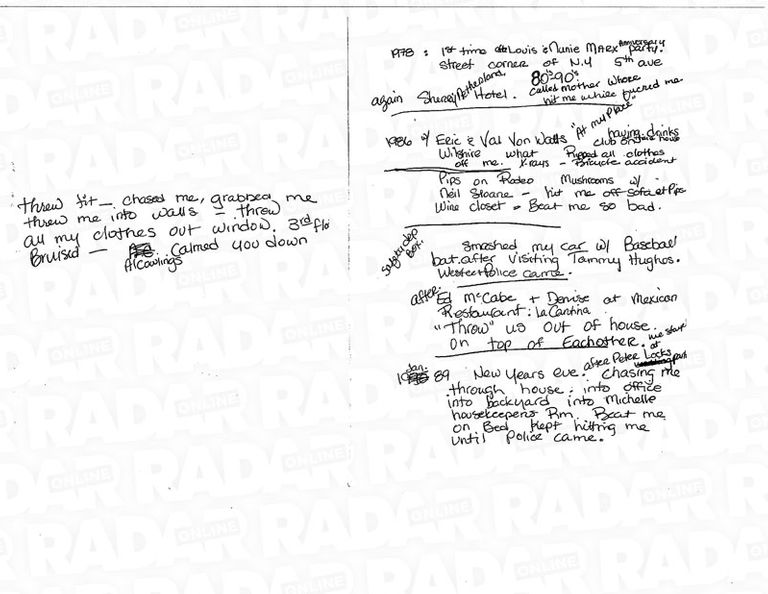 threw fit — chased me, grabbed me
threw me into walls — threw
all my clothes out window. 3rd flo
Bruised —
Al Cowlings Calmed you down
1978 : 1st time after Louis & Nunie MARX Anniversary party.
street corner of N.Y 5th ave
80's 90's
again Sherry Netherland Hotel. called mother whore
hit me while fucked me
1986 w/ Eric & Val Von Watts "At my Place"
having drinks
Wilshire what club on
Ripped all clothes
off me. X-rays — Bicycle accident
Pips on Rodeo Mushrooms w/
Neil Sloane — hit me off sofa at Pips
Wine closet — Beat me so bad.
Safety dep
Box.
smashed my car w/ Baseball
bat. after visiting Tammy Hughes.
Westec Police came.
after: Ed McCabe + Denise at Mexican
Restaurant: la Cantina
"Throw" us out of house.
on top of Eachother. we start
at
Jan.
89 New Years eve. after Peter Locks party
Chasing me
through house : into office
into backyard into Michelle
housekeepers Rm. Beat me
on Bed Kept hitting me
until Police came.
RADAR
ONLINE